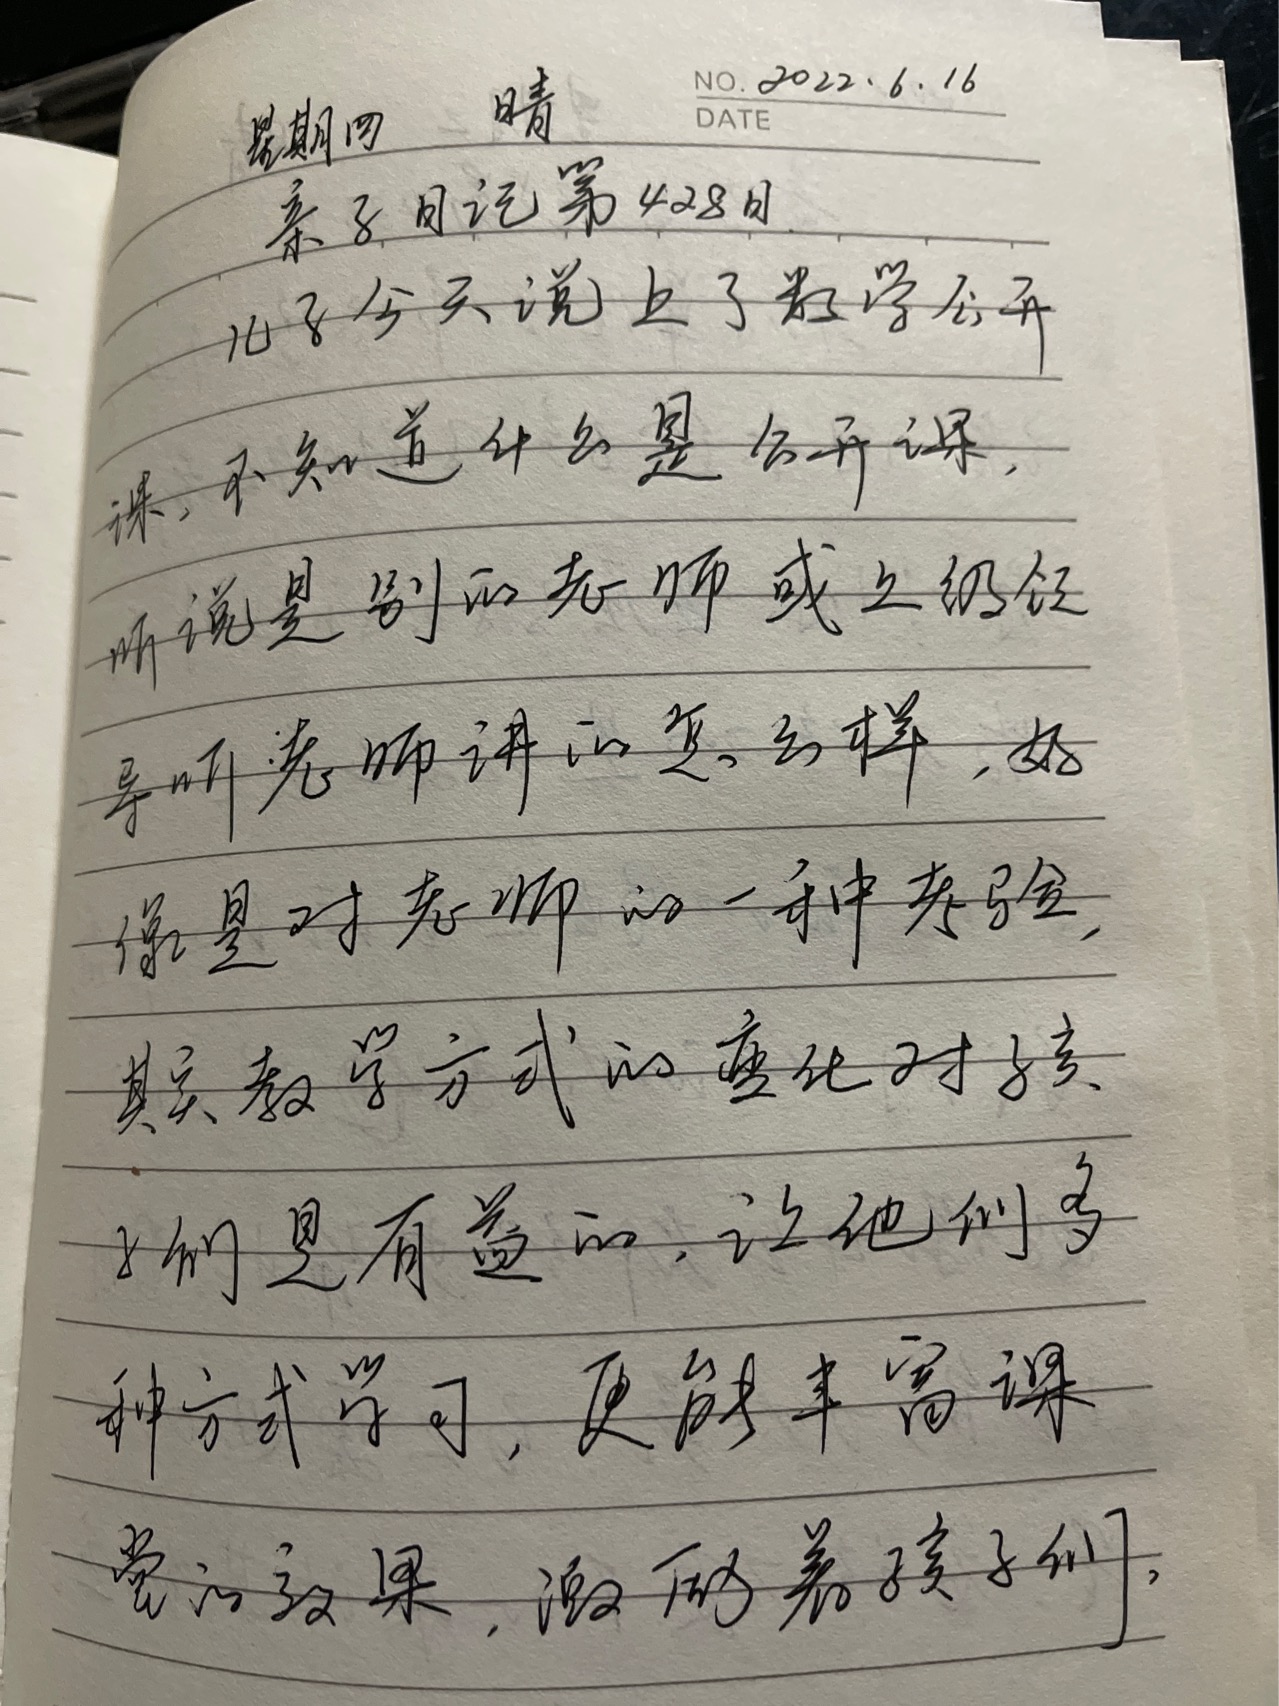 NO. 2022.6.16
星期四 晴
DATE
亲子日记第428日
儿子今天说上了数学公开
课,不知道什么是公开课,
听说是别的老师或上级领
导听老师讲的怎么样,好
像是对老师的一种考验,
其实教学方式的变化对孩
子们是有益的,让他们多
种方式学习,更能丰富课
堂的效果,激励着孩子们,